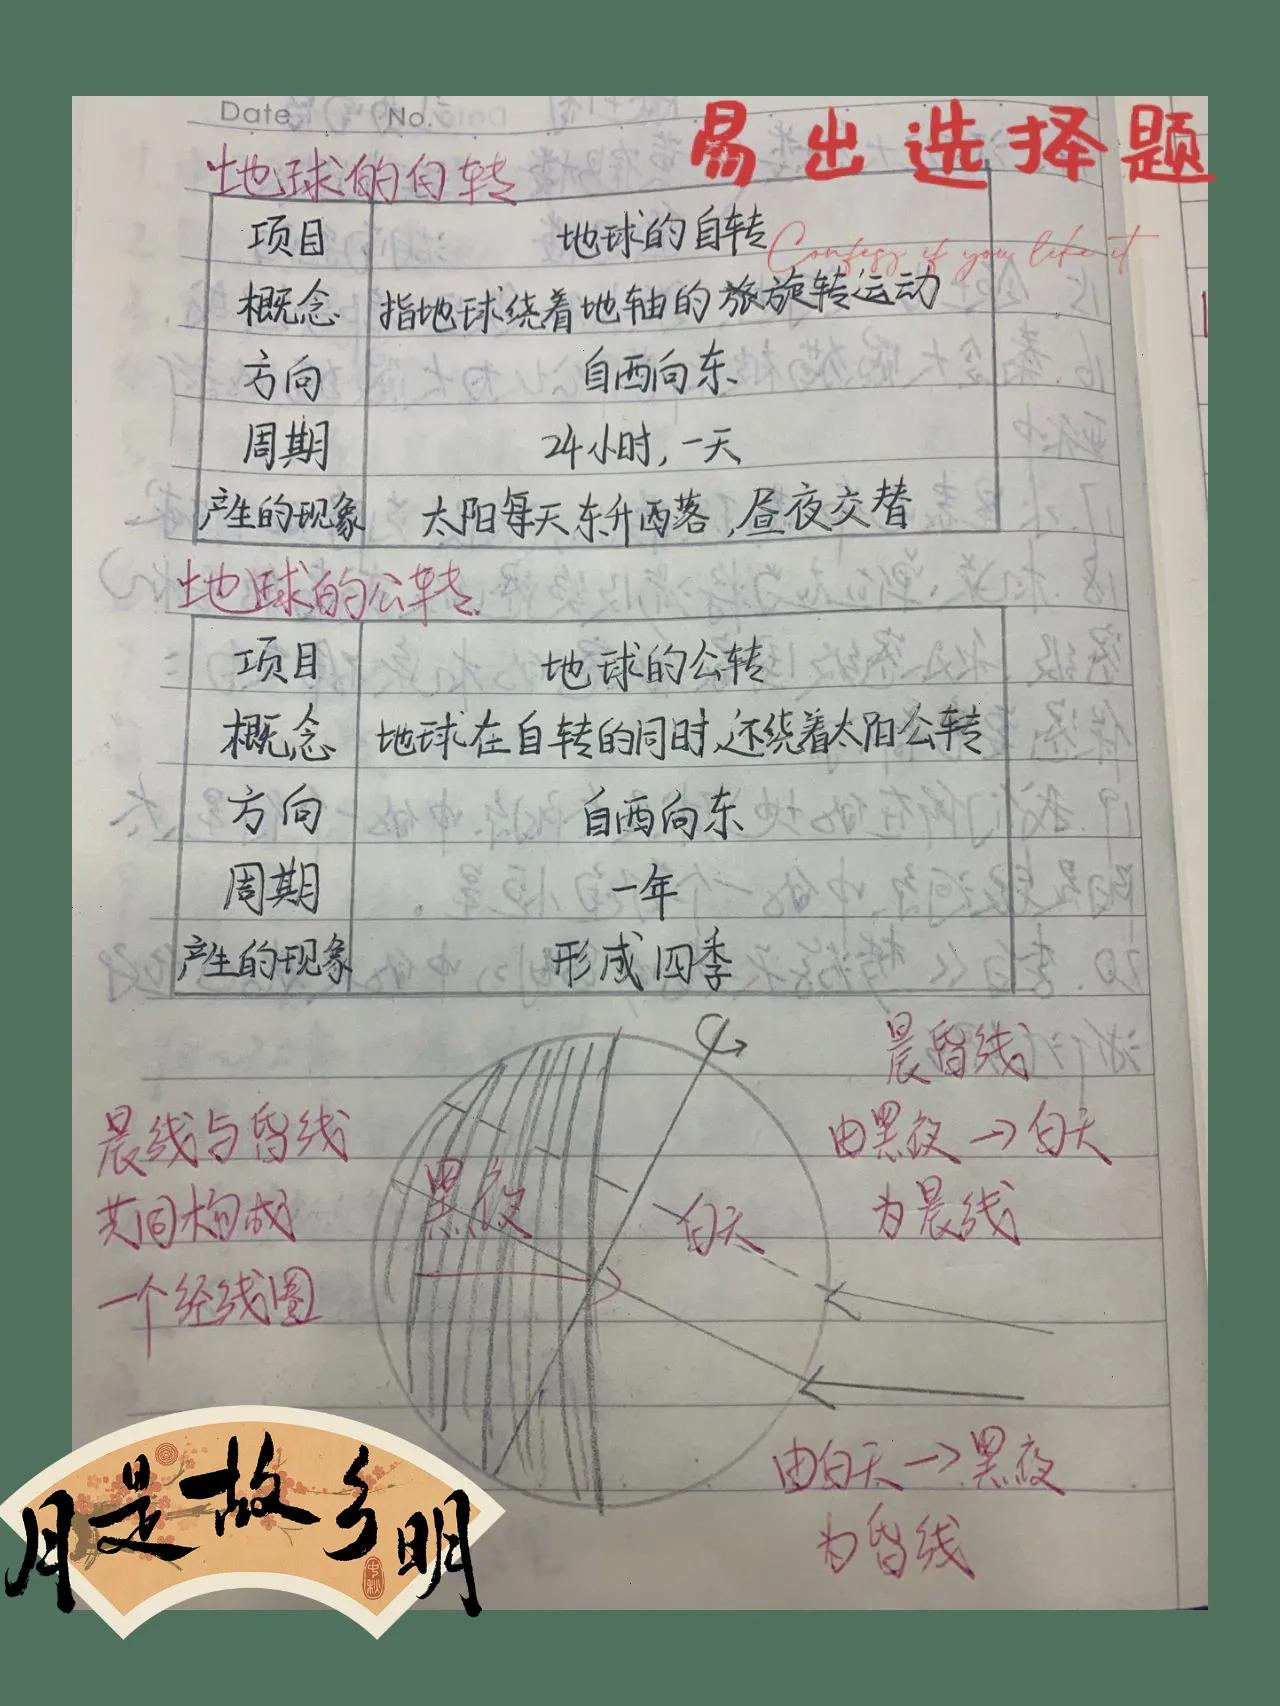 Date No.
易出选择题
地球的自转
项目 地球的自转
Confess if you like it
概念 指地球绕着地轴的旅旋转运动
方向 自西向东
周期 24小时,一天
产生的现象 太阳每天东升西落,昼夜交替
地球的公转
项目 地球的公转
概念 地球在自转的同时,还绕着太阳公转
方向 自西向东
周期 一年
产生的现象 形成四季
晨昏线
由黑夜→白天
为晨线
晨线与昏线
共同构成
一个经线圈
黑夜
白天
由白天→黑夜
为昏线
月是故乡明
中秋